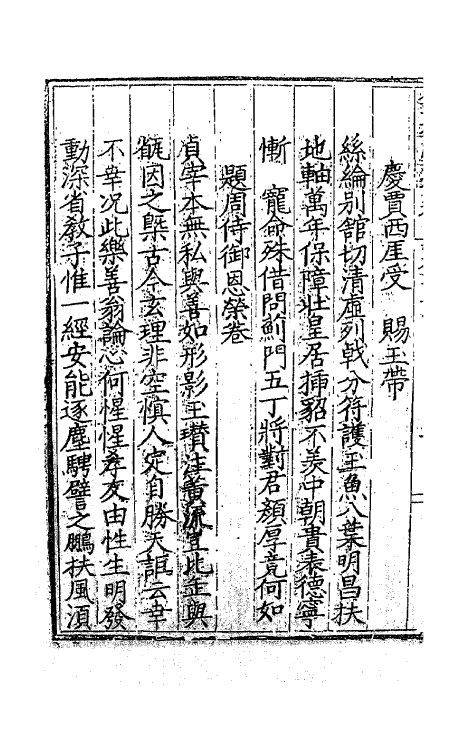 慶賈西厓受　賜玉帶
絲綸別館切清虛列戟分符護玉魚八葉明昌扶
地軸萬年保障壯皇居揷貂不羨中朝貴表德寧
慚　寵命殊借問薊門五丁將對君顏厚竟何如
題周侍御恩榮卷
真宰本無私與善如形影玉瓚注黄流宜比疋與
瓶因之槩古今玄理非空愼人定自勝天詎云幸
不幸况此樂善翁論心何惺惺孝友由性生明發
動深省敎子惟一經安能逐塵騁譬之鵬扶風湏